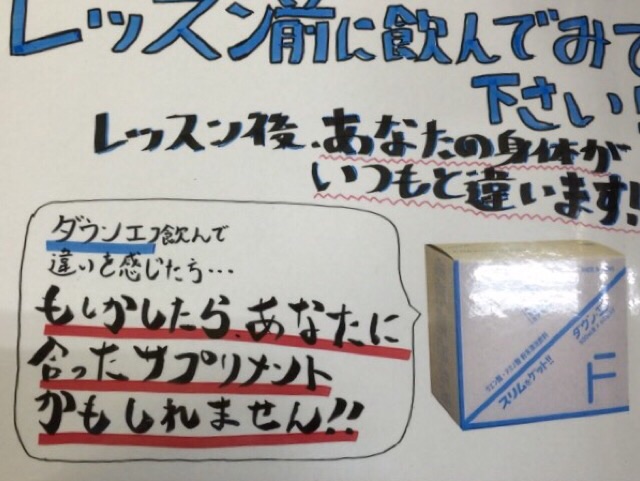 レッスン前に飲んでみて
下さい!
レッスン後、あなたの身体が
いつもと違います!!
ダウンエフ飲んで
違いを感じたら…
もしかしたら、あなたに
合ったサプリメント
かもしれません!!
ダウンエフ
スリムをゲット!!
F